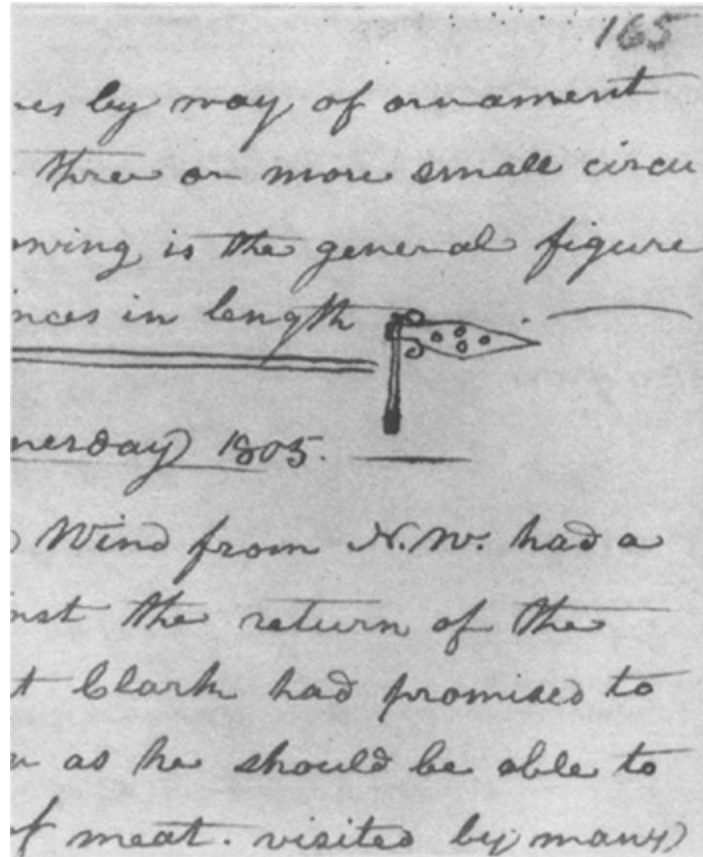 165
es by way of ornament
three or more small circu
owing is the general figure
nces in length
nesday 1805.
Wind from N.W. had a
nst the return of the
t Clark had promised to
n as he should be able to
of meat. visited by many